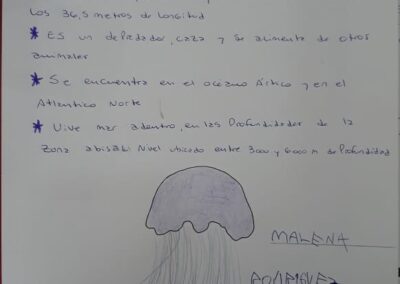 los 36,5 metros de longitud
* Es un depredador, caza y se alimenta de otros
animales
* Se encuentra en el océano Ártico y en el
Atlantico Norte
* Vive mar adentro, en las Profundidades de la
zona abisal: Nivel ubicado entre 3000 y 6000 m de Profundidad
MALENA
RODRIGUEZ